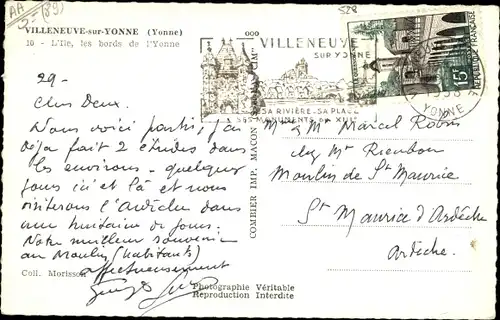 AA
VILLENEUVE-sur-YONNE (Yonne)
10 - L'Ile, les bords de l'Yonne
VILLENEUVE
SUR YONNE
SA RIVIÈRE - SA PLAGE
SES MONUMENTS DU XIIIe
RÉPUBLIQUE FRANÇAISE
15F
YONNE
29 -
Chers Deux.
Nous voici partis, j'ai
déjà fait 2 études dans
les environs - quelques
jours ici et là et nous
visiterons l'Ardèche dans
une huitaine de jours.
Notre meilleur souvenir
au Moulin (habitants)
affectueusement
Coll. Morisson
COMBIER IMP. MACON "CIM"
M. & Mme Marcel Robin
chez Mr
Moulin de St Maurice
St Maurice d'Ardèche
Ardèche.
Photographie Véritable
Reproduction Interdite